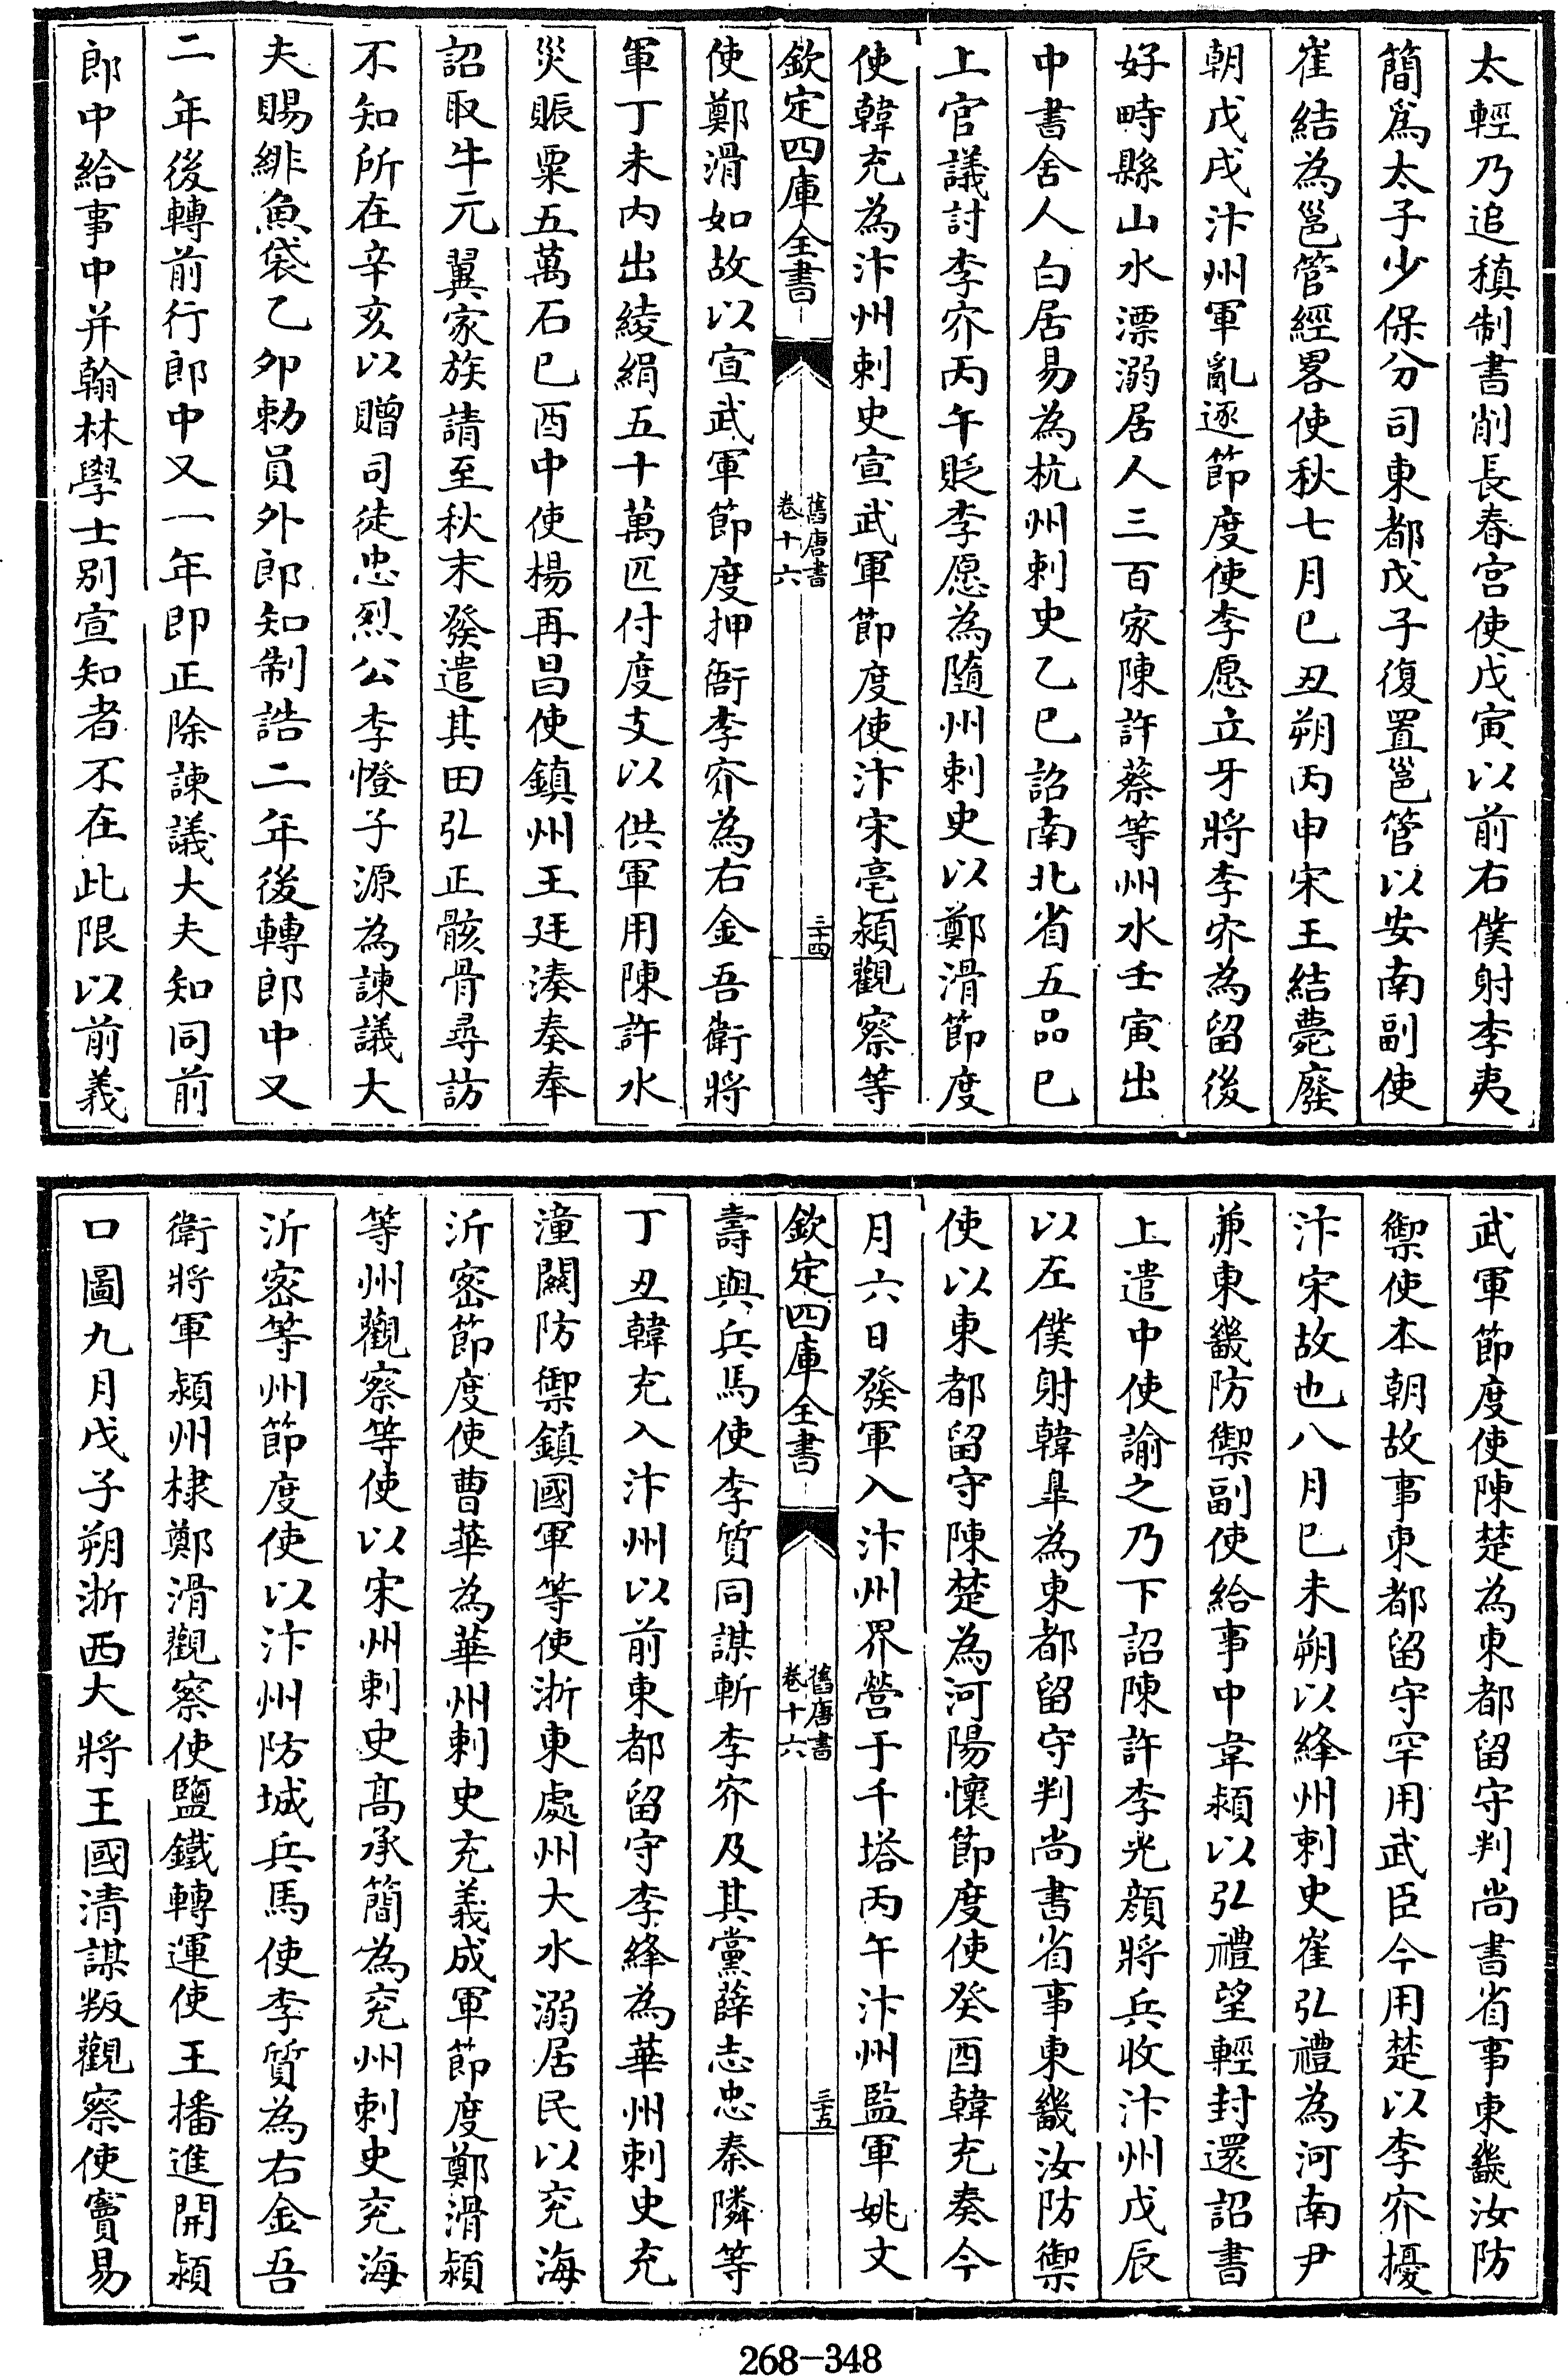 太輕乃追稹制書削長春宫使戊寅以前右僕射李夷
簡為太子少保分司東都戊子復置邕管以安南副使
崔結為邕管經畧使秋七月已丑朔丙申宋王結薨廢
朝戊戌汴州軍亂逐節度使李愿立牙將李㝏為留後
好畤縣山水漂溺居人三百家陳許蔡等州水壬寅出
中書舍人白居易為杭州刺史乙巳詔南北省五品已
上官議討李㝏丙午貶李愿為隨州刺史以鄭滑節度
使韓充為汴州刺史宣武軍節度使汴宋亳潁觀察等
欽定四庫全書
舊唐書
卷十六
三十四
使鄭滑如故以宣武軍節度押衙李㝏為右金吾衛將
軍丁未内出綾絹五十萬匹付度支以供軍用陳許水
災賑粟五萬石已酉中使楊再昌使鎮州王廷湊奏奉
詔取牛元翼家族請至秋末發遣其田弘正骸骨尋訪
不知所在辛亥以贈司徒忠烈公李憕子源為諫議大
夫賜緋魚袋乙夘勅員外郎知制誥二年後轉郎中又
二年後轉前行郎中又一年即正除諫議大夫知同前
郎中給事中并翰林學士别宣知者不在此限以前義
武軍節度使陳楚為東都留守判尚書省事東畿汝防
禦使本朝故事東都留守罕用武臣今用楚以李㝏擾
汴宋故也八月已未朔以絳州刺史崔弘禮為河南尹
兼東畿防禦副使給事中韋頴以弘禮望輕封還詔書
上遣中使諭之乃下詔陳許李光顔將兵收汴州戊辰
以左僕射韓臯為東都留守判尚書省事東畿汝防禦
使以東都留守陳楚為河陽懷節度使癸酉韓充奏今
月六日發軍入汴州界營于千塔丙午汴州監軍姚文
欽定四庫全書
舊唐書
卷十六
三十五
壽與兵馬使李質同謀斬李㝏及其黨薛志忠秦隣等
丁丑韓充入汴州以前東都留守李絳為華州刺史充
潼關防禦鎮國軍等使浙東處州大水溺居民以兖海
沂密節度使曹華為華州刺史充義成軍節度鄭滑潁
等州觀察等使以宋州刺史高承簡為兖州刺史兖海
沂密等州節度使以汴州防城兵馬使李質為右金吾
衛將軍潁州棣鄭滑觀察使鹽鐵轉運使王播進開潁
口圖九月戊子朔浙西大將王國清謀叛觀察使竇易
268-348